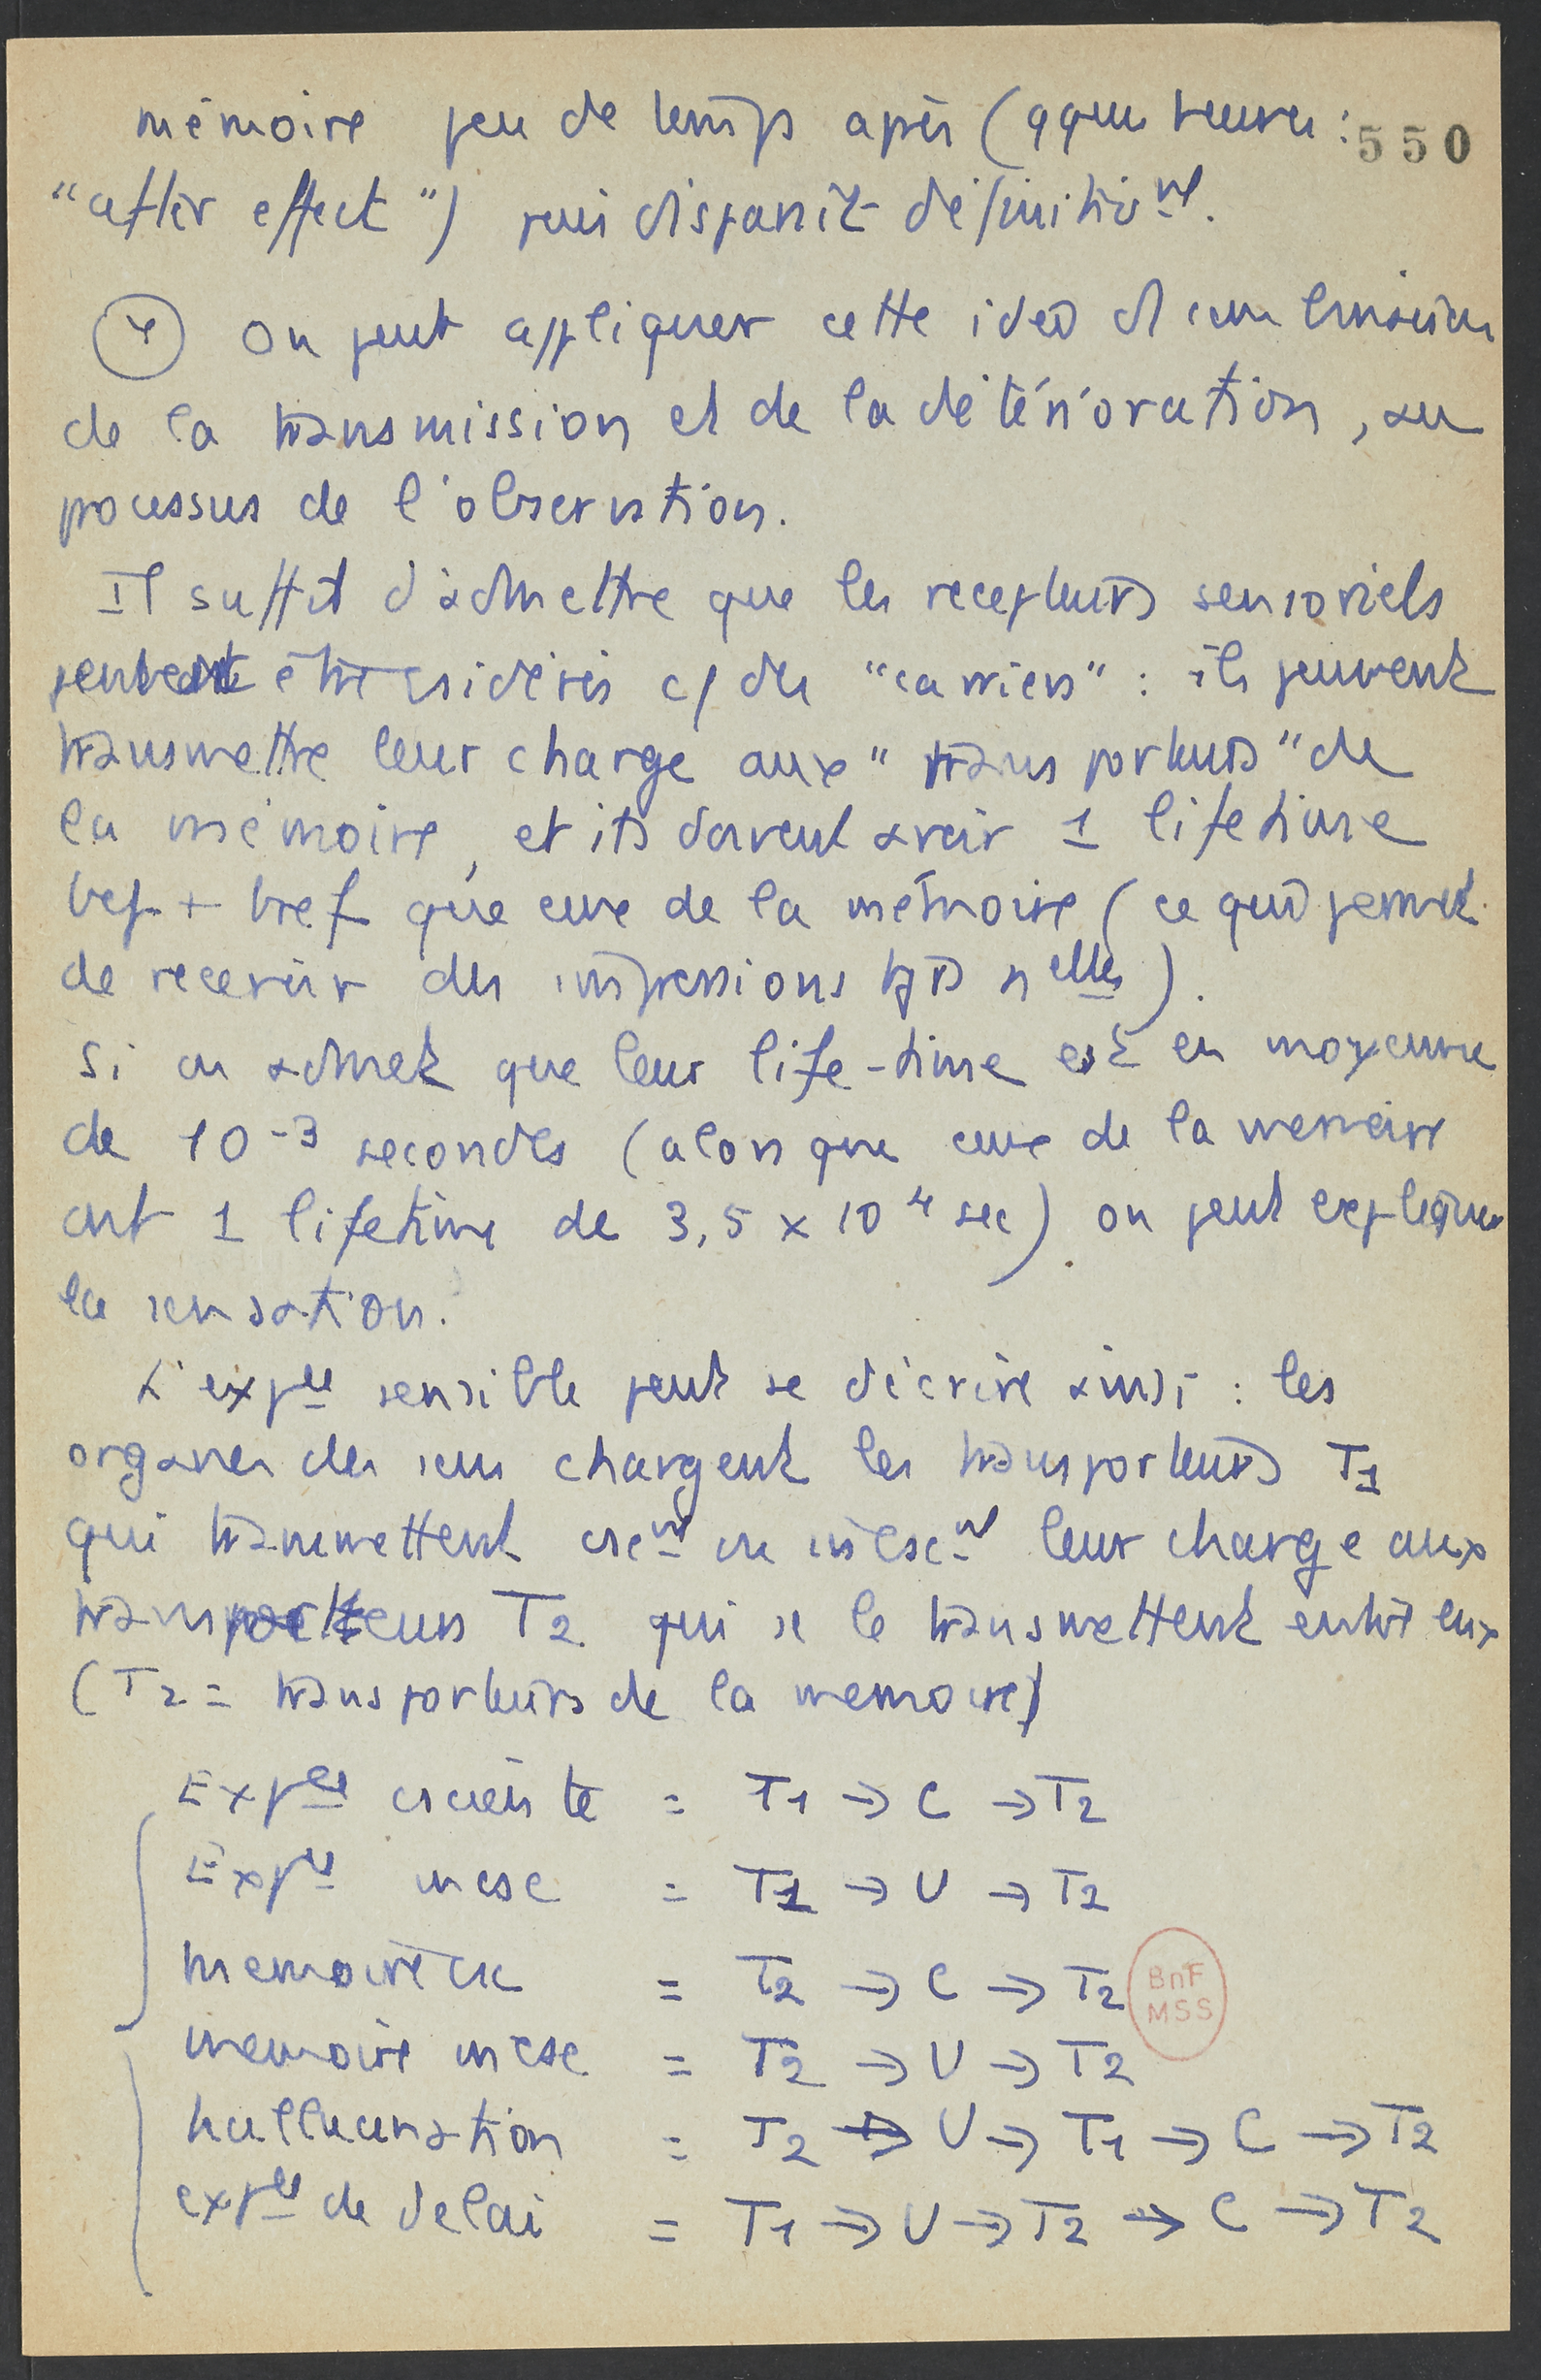 mémoire peu de temps après (qques heures : 550
"after effect") puis disparait définitivt.
4 On peut appliquer cette idée d'une
de la transmission et de la détérioration, au
processus de l'observation.
Il suffit d'admettre que les recepteurs sensoriels
peuvent être csidérés c/ des "carriers" : ils peuvent
transmettre leur charge aux "transporteurs" de
la mémoire, et ils doivent avoir 1 lifetime
bcp + bref que ceux de la mémoire (ce qui permet
de recevoir des impressions tjrs nelles).
Si on admet que leur life-time est en moyenne
de 10-3 secondes (alors que ceux de la memoire
ont 1 lifetime de 3,5 x 10 4 sec) on peut expliquer
la sensation.
L'expce sensible peut se décrire ainsi : les
organes des sens chargent les transporteurs T1
qui transmettent csct ou incsct leur charge aux
transporteurs T2 qui se le transmettent entre eux
(T2 = transporteurs de la memoire)
Expce csciente = T1 → C → T2
Expce incsc = T1 → U → T2
memoire csc = T2 → C → T2
BnF
MSS
memoire incsc = T2 → U → T2
hallucination = T2 → U → T1 → C → T2
expce de delai = T1 → U → T2 → C → T2